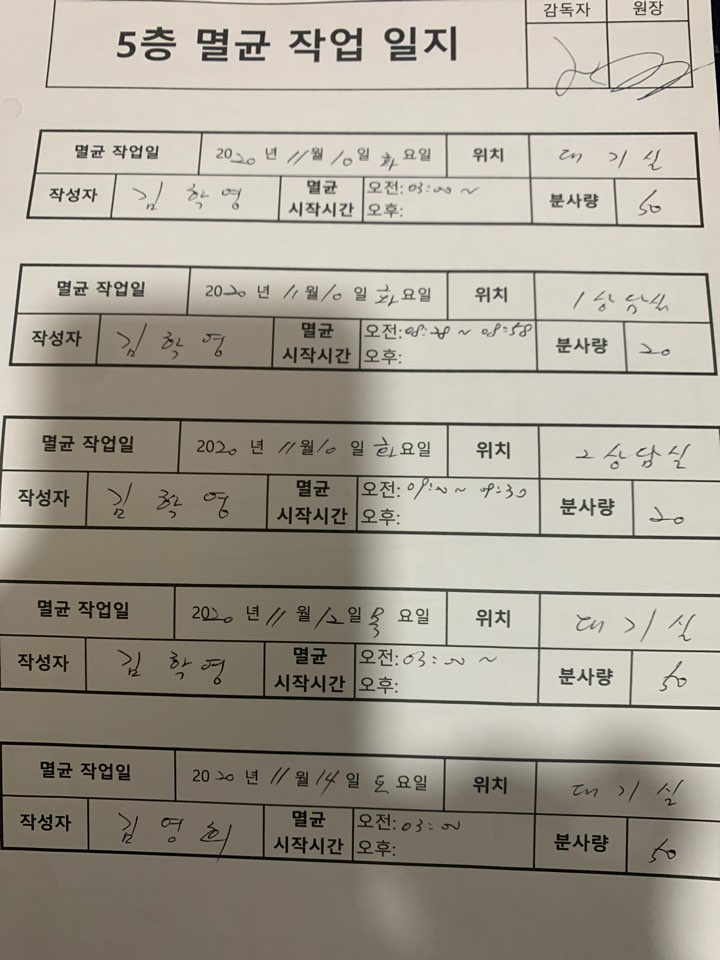 감독자 원장
5층 멸균 작업 일지
멸균 작업일 2020년 11월 10일 화요일 위치 대기실
작성자 김학영 멸균 시작시간 오전: 03:00 ~ 오후: 분사량 50
멸균 작업일 2020년 11월 10일 화요일 위치 1상담실
작성자 김학영 멸균 시작시간 오전: 08:38 ~ 08:58 오후: 분사량 20
멸균 작업일 2020년 11월 10일 화요일 위치 2상담실
작성자 김학영 멸균 시작시간 오전: 09:00 ~ 09:30 오후: 분사량 20
멸균 작업일 2020년 11월 12일 목요일 위치 대기실
작성자 김학영 멸균 시작시간 오전: 03:00 ~ 오후: 분사량 50
멸균 작업일 2020년 11월 14일 토요일 위치 대기실
작성자 김영희 멸균 시작시간 오전: 03:00 오후: 분사량 50